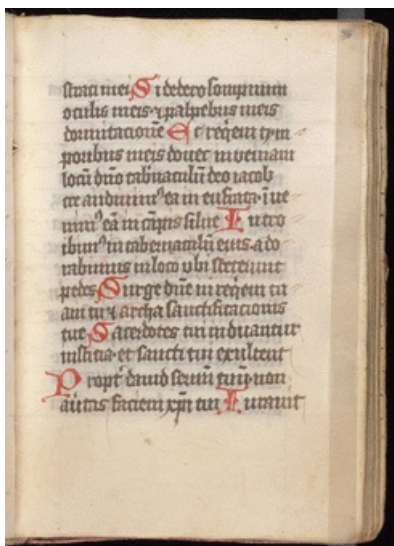 strati mei Si dedero sompnum
oculis meis · et palpebris meis
dormitacione Et req̄em tym
poribus meis donec inveniam
locū dn̄o tab̄naculū deo iacob
cce audiuim⁹ ea in eufrata · īue
nim⁹ eā in cāpis silue Intro
ibim⁹ in tabernaculū eius · ado
rabimus in loco vbi steterunt
pedes Surge dn̄e in req̄em tu
am tu et archa sanctificacionis
tue Sacerdotes tui induantur
iusticia · et sancti tui exultent
Propt̄ dauid seruū tuū · non
au̅tas faciem xp̄i tui Iurauit